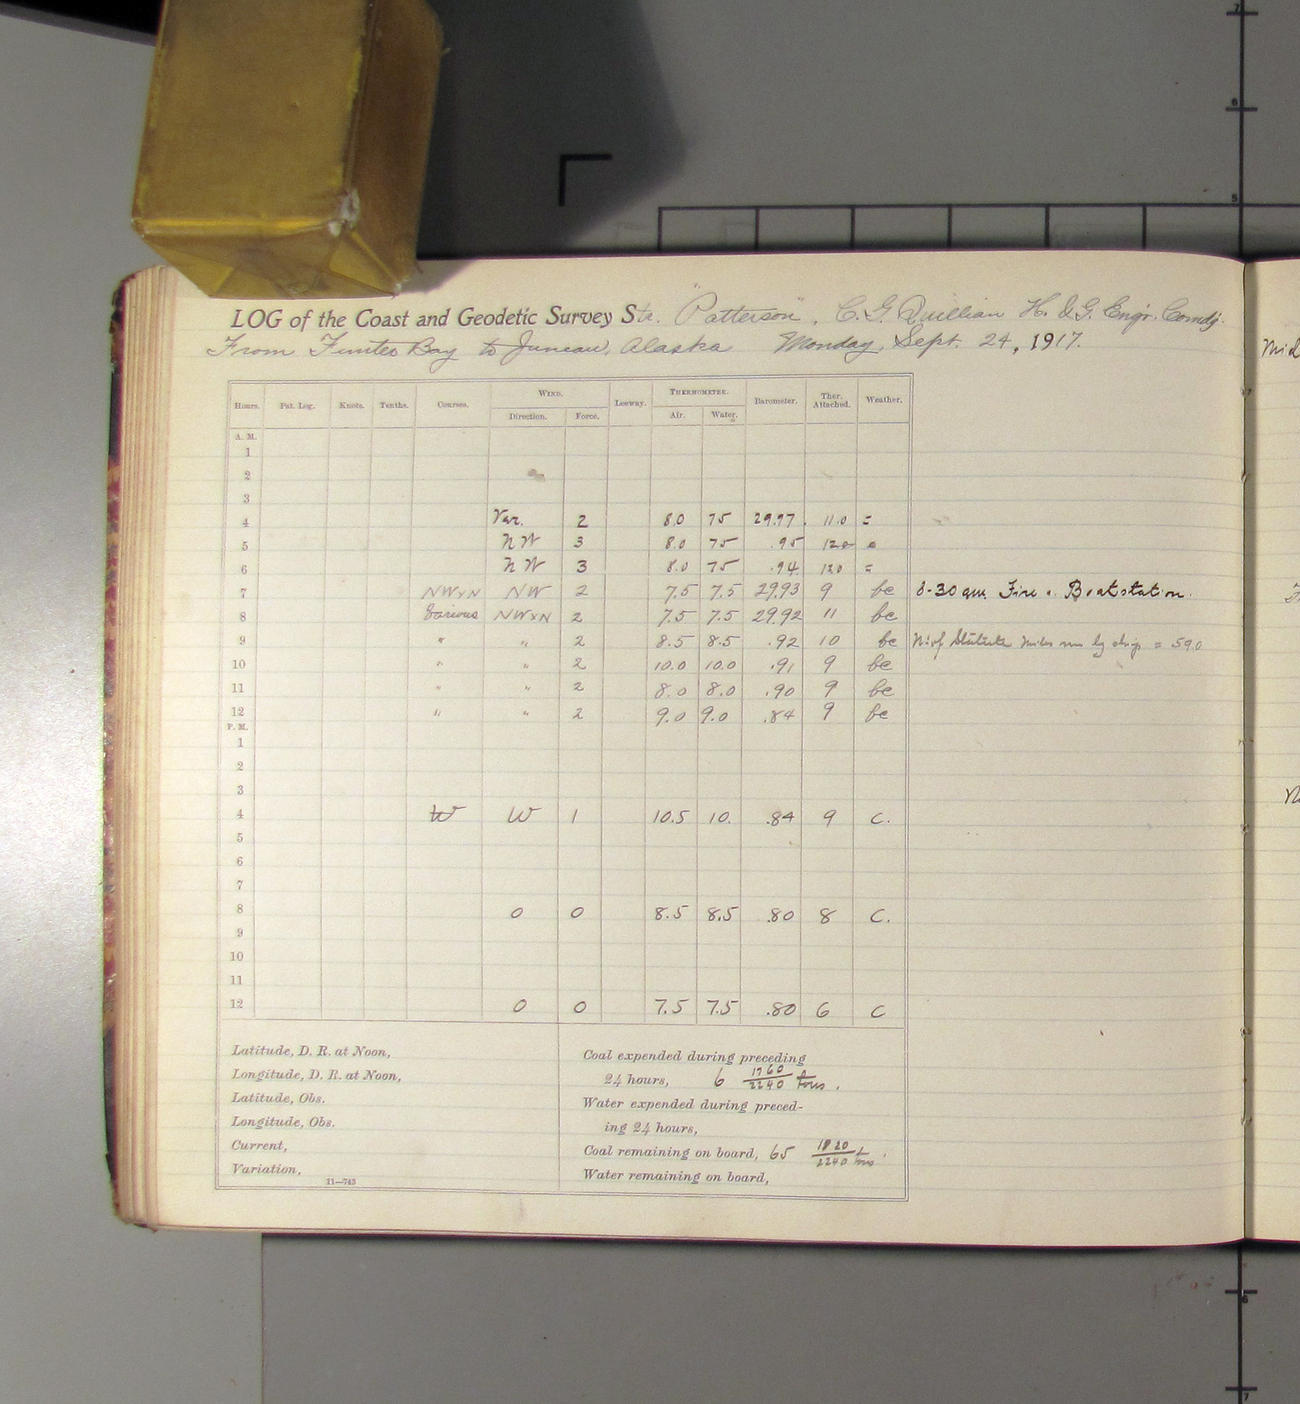 LOG of the Coast and Geodetic Survey Str. "Patterson", C. G. Quillian H. & G. Engr. Comdg.
From Funter Bay to Juneau, Alaska Monday, Sept. 24, 1917.
Hours. Pat. Log. Knots. Tenths. Courses. WIND. Leeway. THERMOMETER. Barometer. Ther. Attached. Weather.
Direction. Force. Air. Water.
A. M.
1
2
3
4 Var. 2 8.0 75 29.97 11.0 =
5 NW 3 8.0 75 .95 12.0
6 NW 3 8.0 75 .94 12.0 =
7 NWxN NW 2 7.5 7.5 29.93 9 bc 8-30 am Fire Boat station.
8 Various NWxN 2 7.5 7.5 29.92 11 bc
9 " " 2 8.5 8.5 .92 10 bc No. of Statute miles run by ship = 59.0
10 " " 2 10.0 10.0 .91 9 bc
11 " " 2 8.0 8.0 .90 9 bc
12 " " 2 9.0 9.0 .84 9 bc
P. M.
1
2
3
4 W W 1 10.5 10. .84 9 C.
5
6
7
8 0 0 8.5 8.5 .80 8 C.
9
10
11
12 0 0 7.5 7.5 .80 6 C
Latitude, D. R. at Noon,
Longitude, D. R. at Noon,
Latitude, Obs.
Longitude, Obs.
Current,
Variation,
11—743
Coal expended during preceding
24 hours, 6 1760/2240 tons.
Water expended during preced-
ing 24 hours,
Coal remaining on board, 65 1820/2240 tons.
Water remaining on board,
Mid
7
6
5
6
7